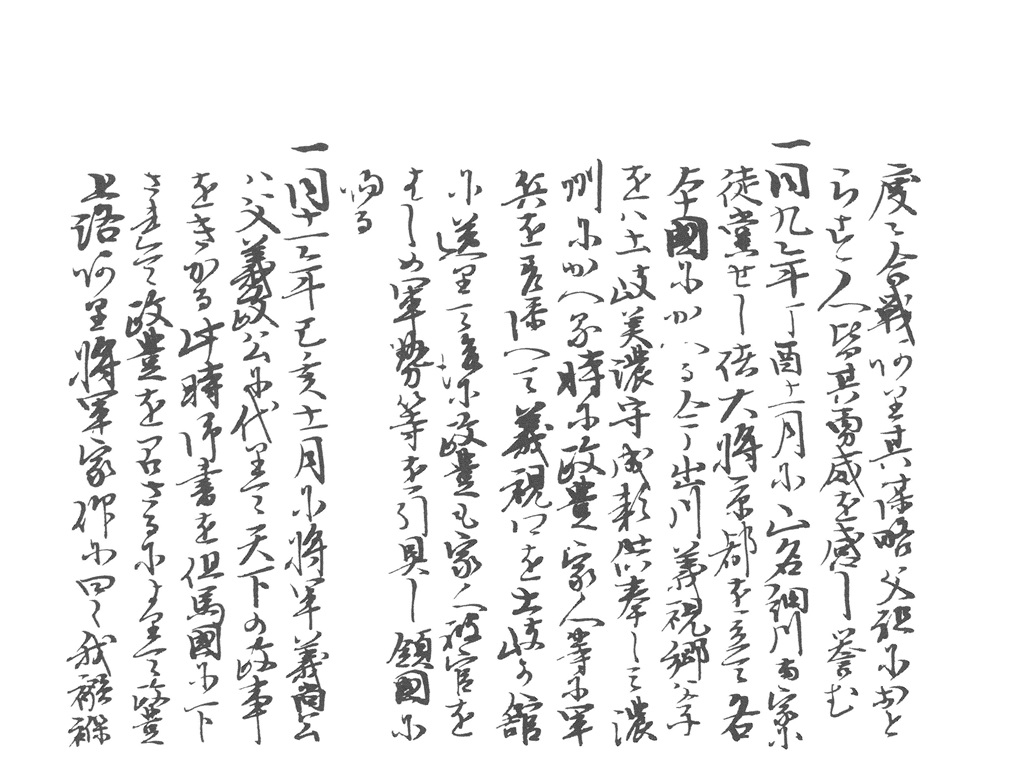 度〻合戦ありて其謀略父祖におと
らす人皆其勇威を感し誉む
一同九乙年丁酉十一月に山名細川両家に
徒党せし諸大将京都を立て各
本国にかへる今出川義視郷父子
をハ土岐美濃守成頼供奉して濃
州にかへる時に政豊家人等に軍
兵を差添へて義視を土岐か館
に送りて後に政豊も家人被官を
はしめ軍勢等を引具し領国に
帰る
一同十一乙年己亥十一月に将軍義尚公
ハ父義政公に代りて天下の政事
をきかる此時御書を但馬国に下
されて政豊を召さるによりて政豊
上洛あり将軍家仰に曰く我襁褓